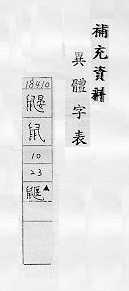 補充資料
異體字表
18410
鼹
10
23
鼴▲